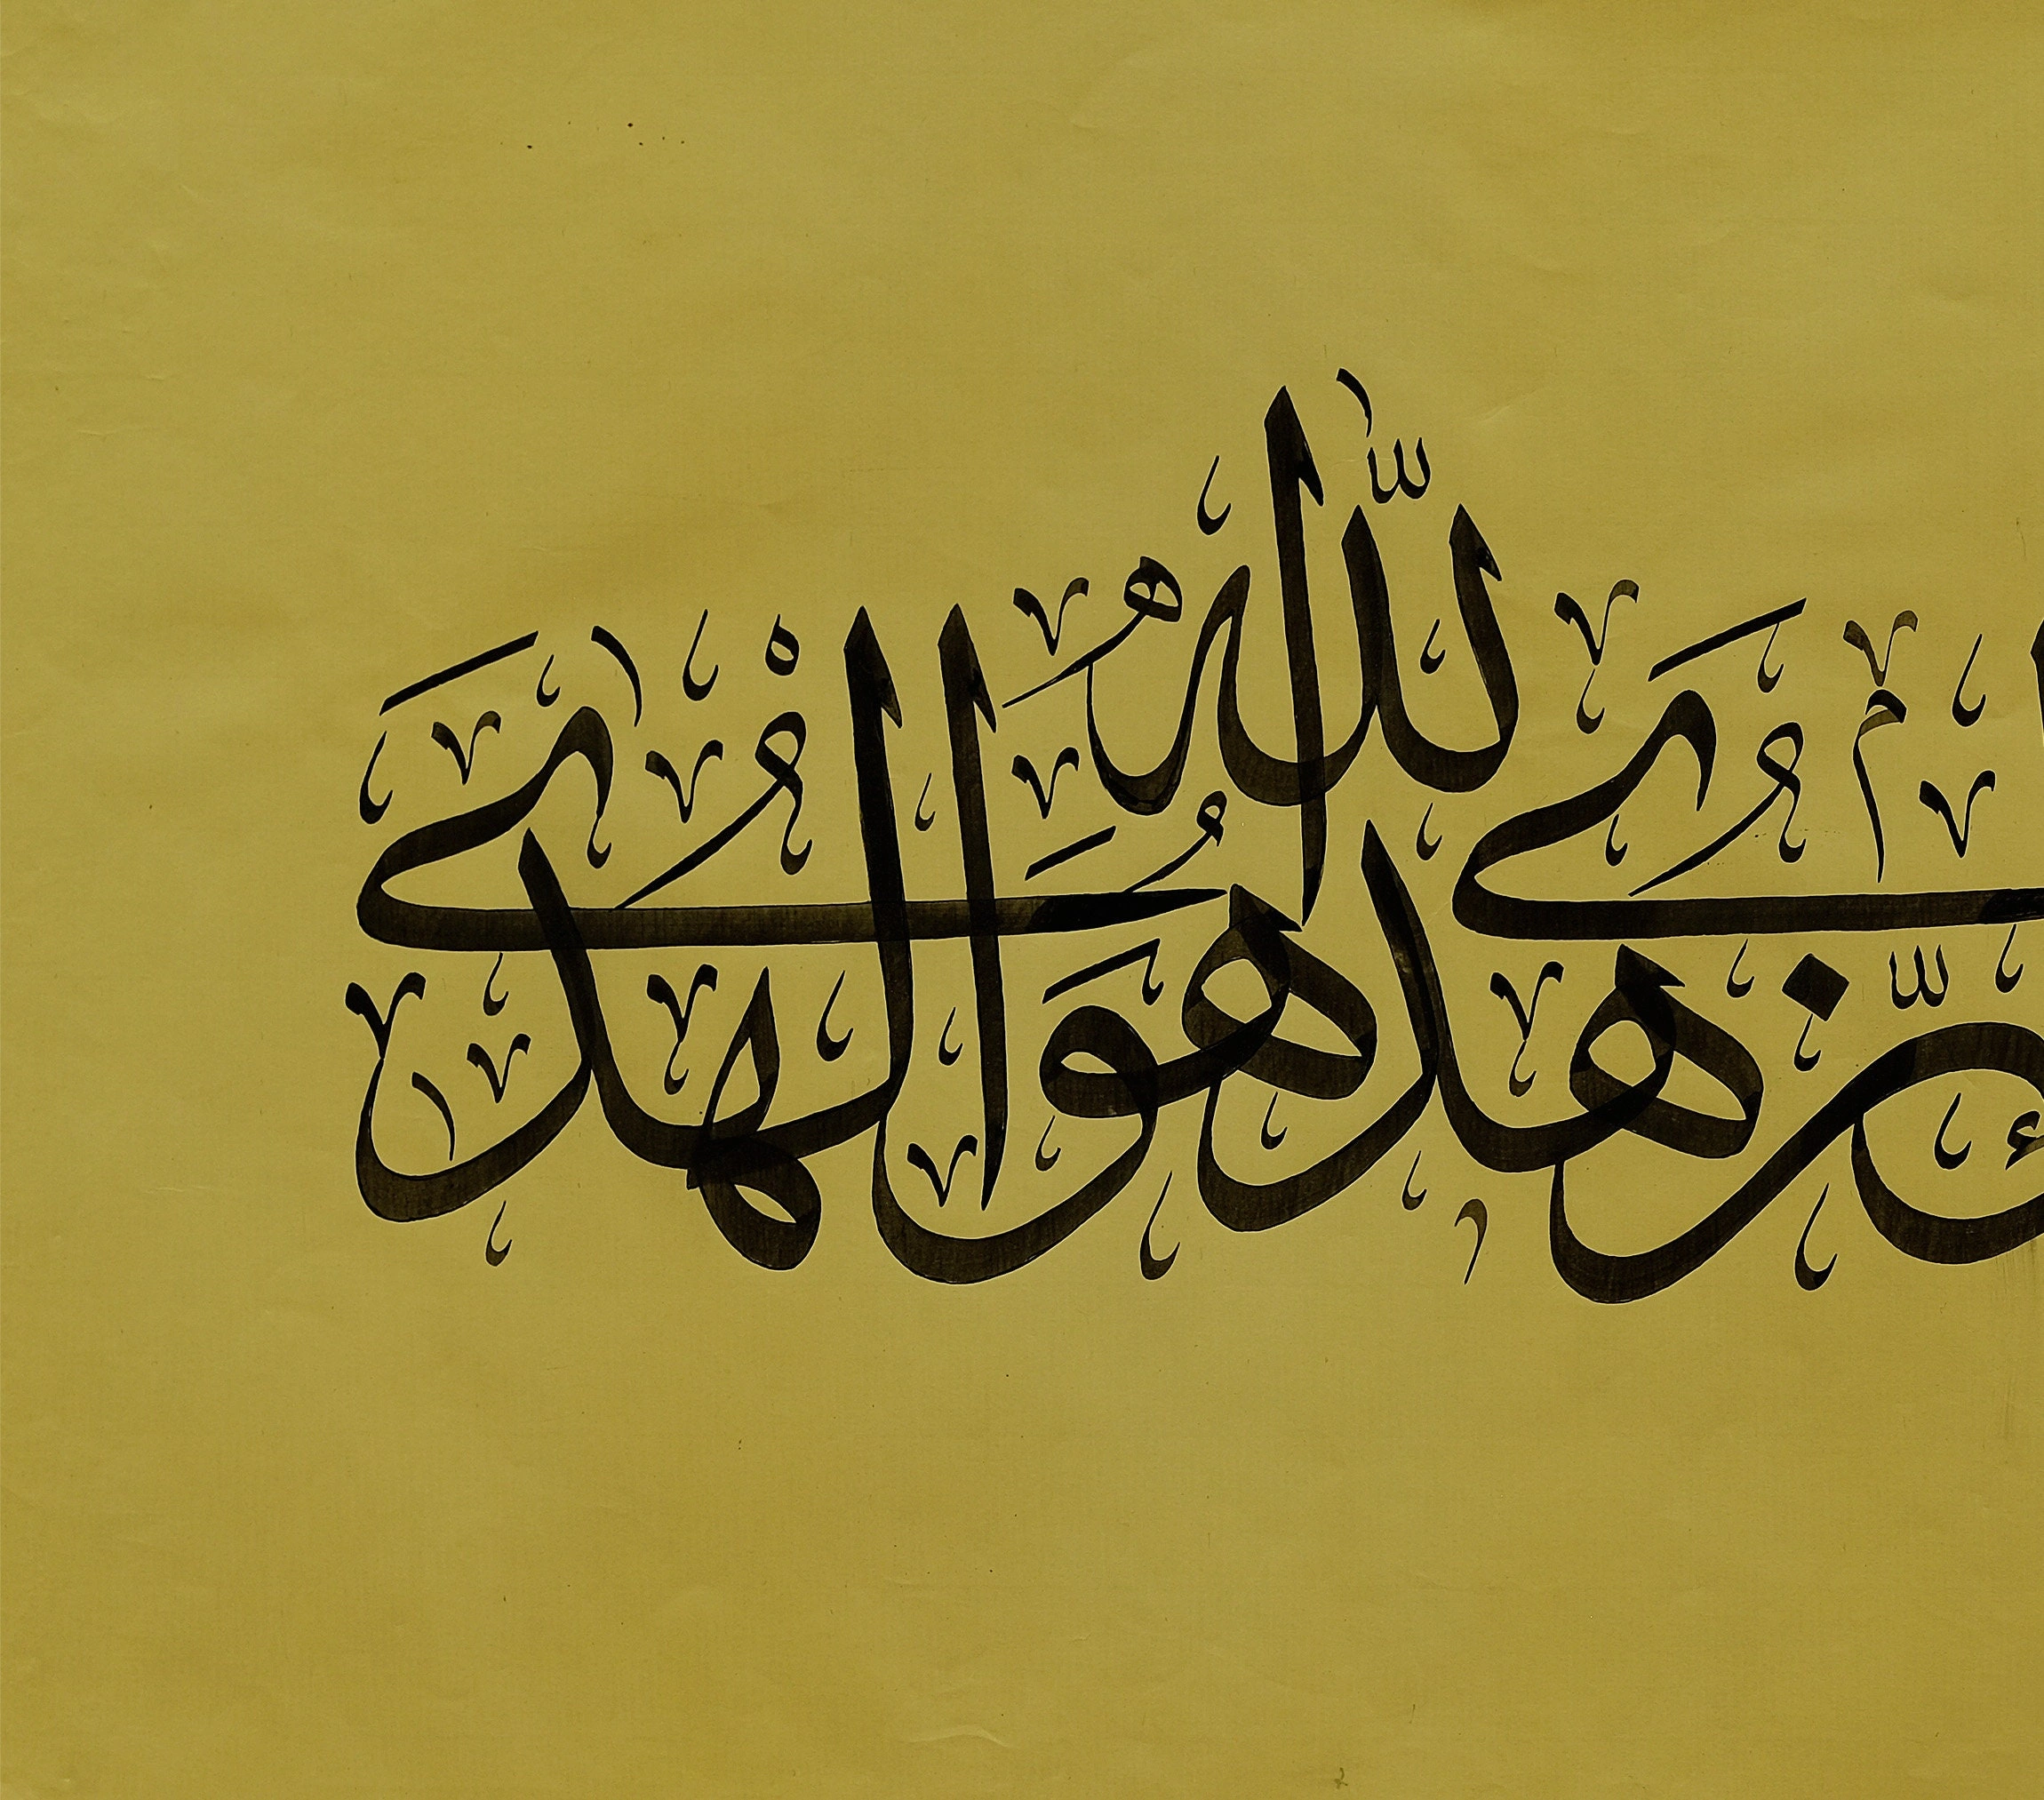 هُدَى اللّٰهِ هُوَ الْهُدٰى